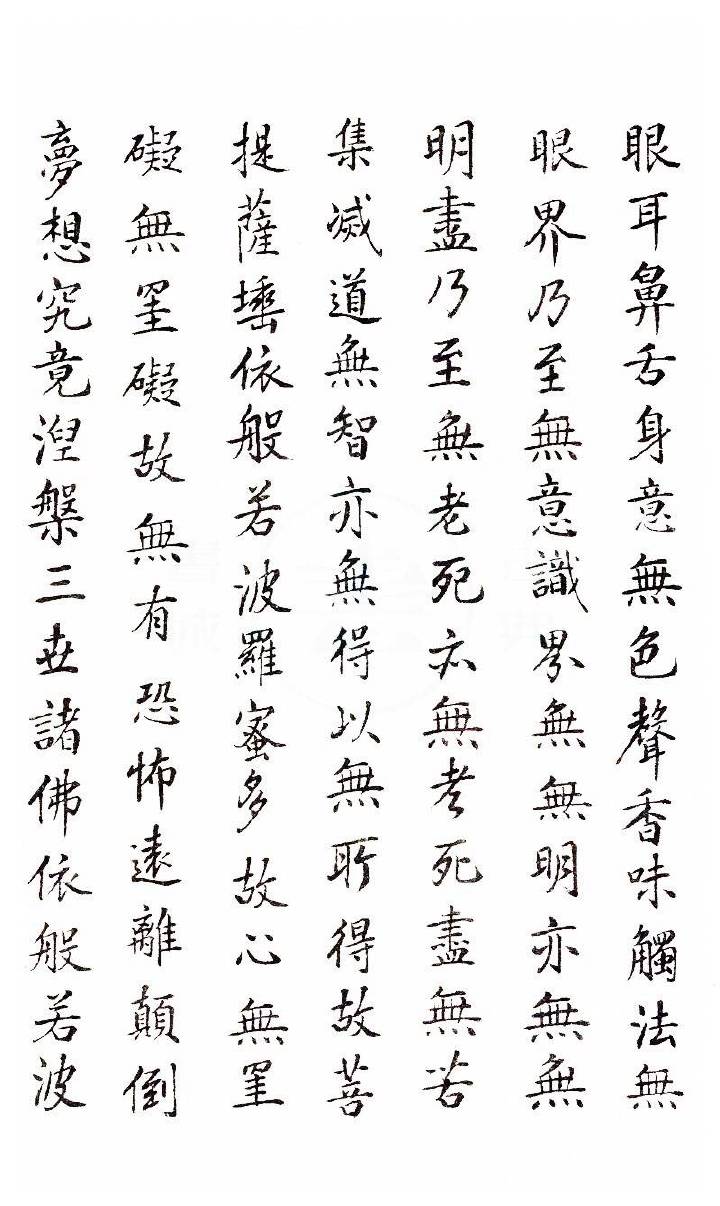 眼耳鼻舌身意無色聲香味觸法無
眼界乃至無意識界無無明亦無無
明盡乃至無老死亦無老死盡無苦
集滅道無智亦無得以無所得故菩
提薩埵依般若波羅蜜多故心無罣
礙無罣礙故無有恐怖遠離顛倒
夢想究竟涅槃三世諸佛依般若波